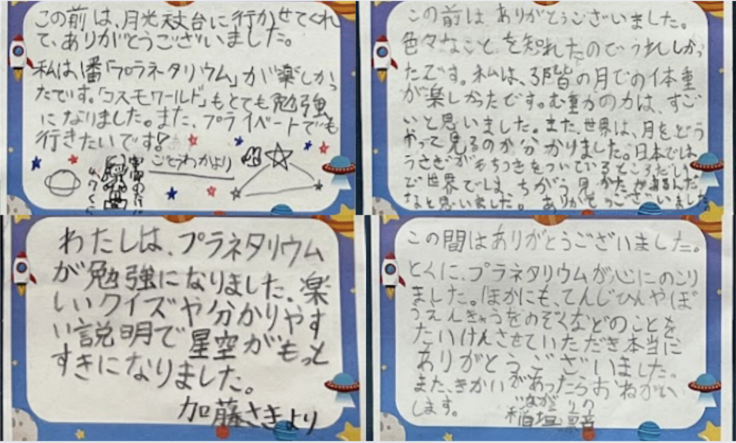 この前は、月光天文台に行かせてくれ
て、ありがとうございました。
私は、1番「プラネタリウム」が楽しかっ
たです。「コスモワールド」もとても勉強
になりました。また、プライベートでも
行きたいです!
ごとうわかより
この前は、ありがとうございました。
色々なことを知れたのでうれしかっ
たです。私は、3階の月での体重
が楽しかったです。む重力の力は、すご
いと思いました。また、世界は、月をどう
やって見るのか分かりました。日本では、
うさぎがもちつきをついているところだ
で世界では、ちがう見かたがあるんだ
なと思いました。ありがとうございました
わたしは、プラネタリウム
が勉強になりました。楽
しいクイズや分かりやす
い説明で星空がもっと
すきになりました。
加藤さきより
この間はありがとうございました。
とくに、プラネタリウムが心にのこり
ました。ほかにも、てんじひんやぼ
うえんきょうをのぞくなどのことを
たいけんさせていただき本当に
ありがとうございました。
また、きかいがあったらおねがい
します。
稲垣